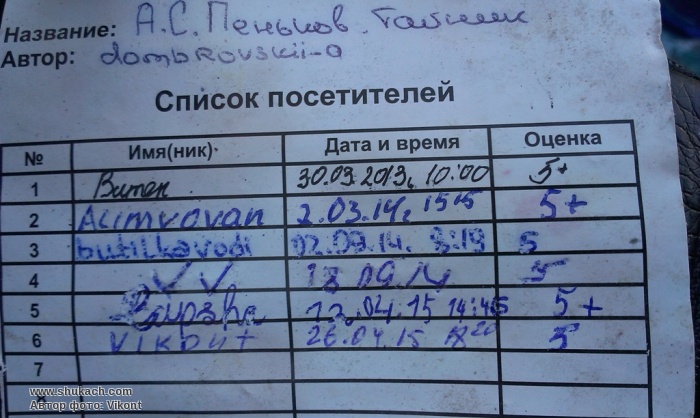 Название: А.С. Пеньков. Тайник
Автор: dombrovskii-a
Список посетителей
№ Имя(ник) Дата и время Оценка
1 Витек 30.03.2013г. 10:00 5+
2 Alimvovan 2.03.14г. 15 15 5+
3 butilkavodi 02.09.14. 8:19 5
4 13 09 14 5
5 12.04.15 14:45 5+
6 Vikont 26.04.15 18 20 5
7
www.shukach.com
Автор фото: Vikont